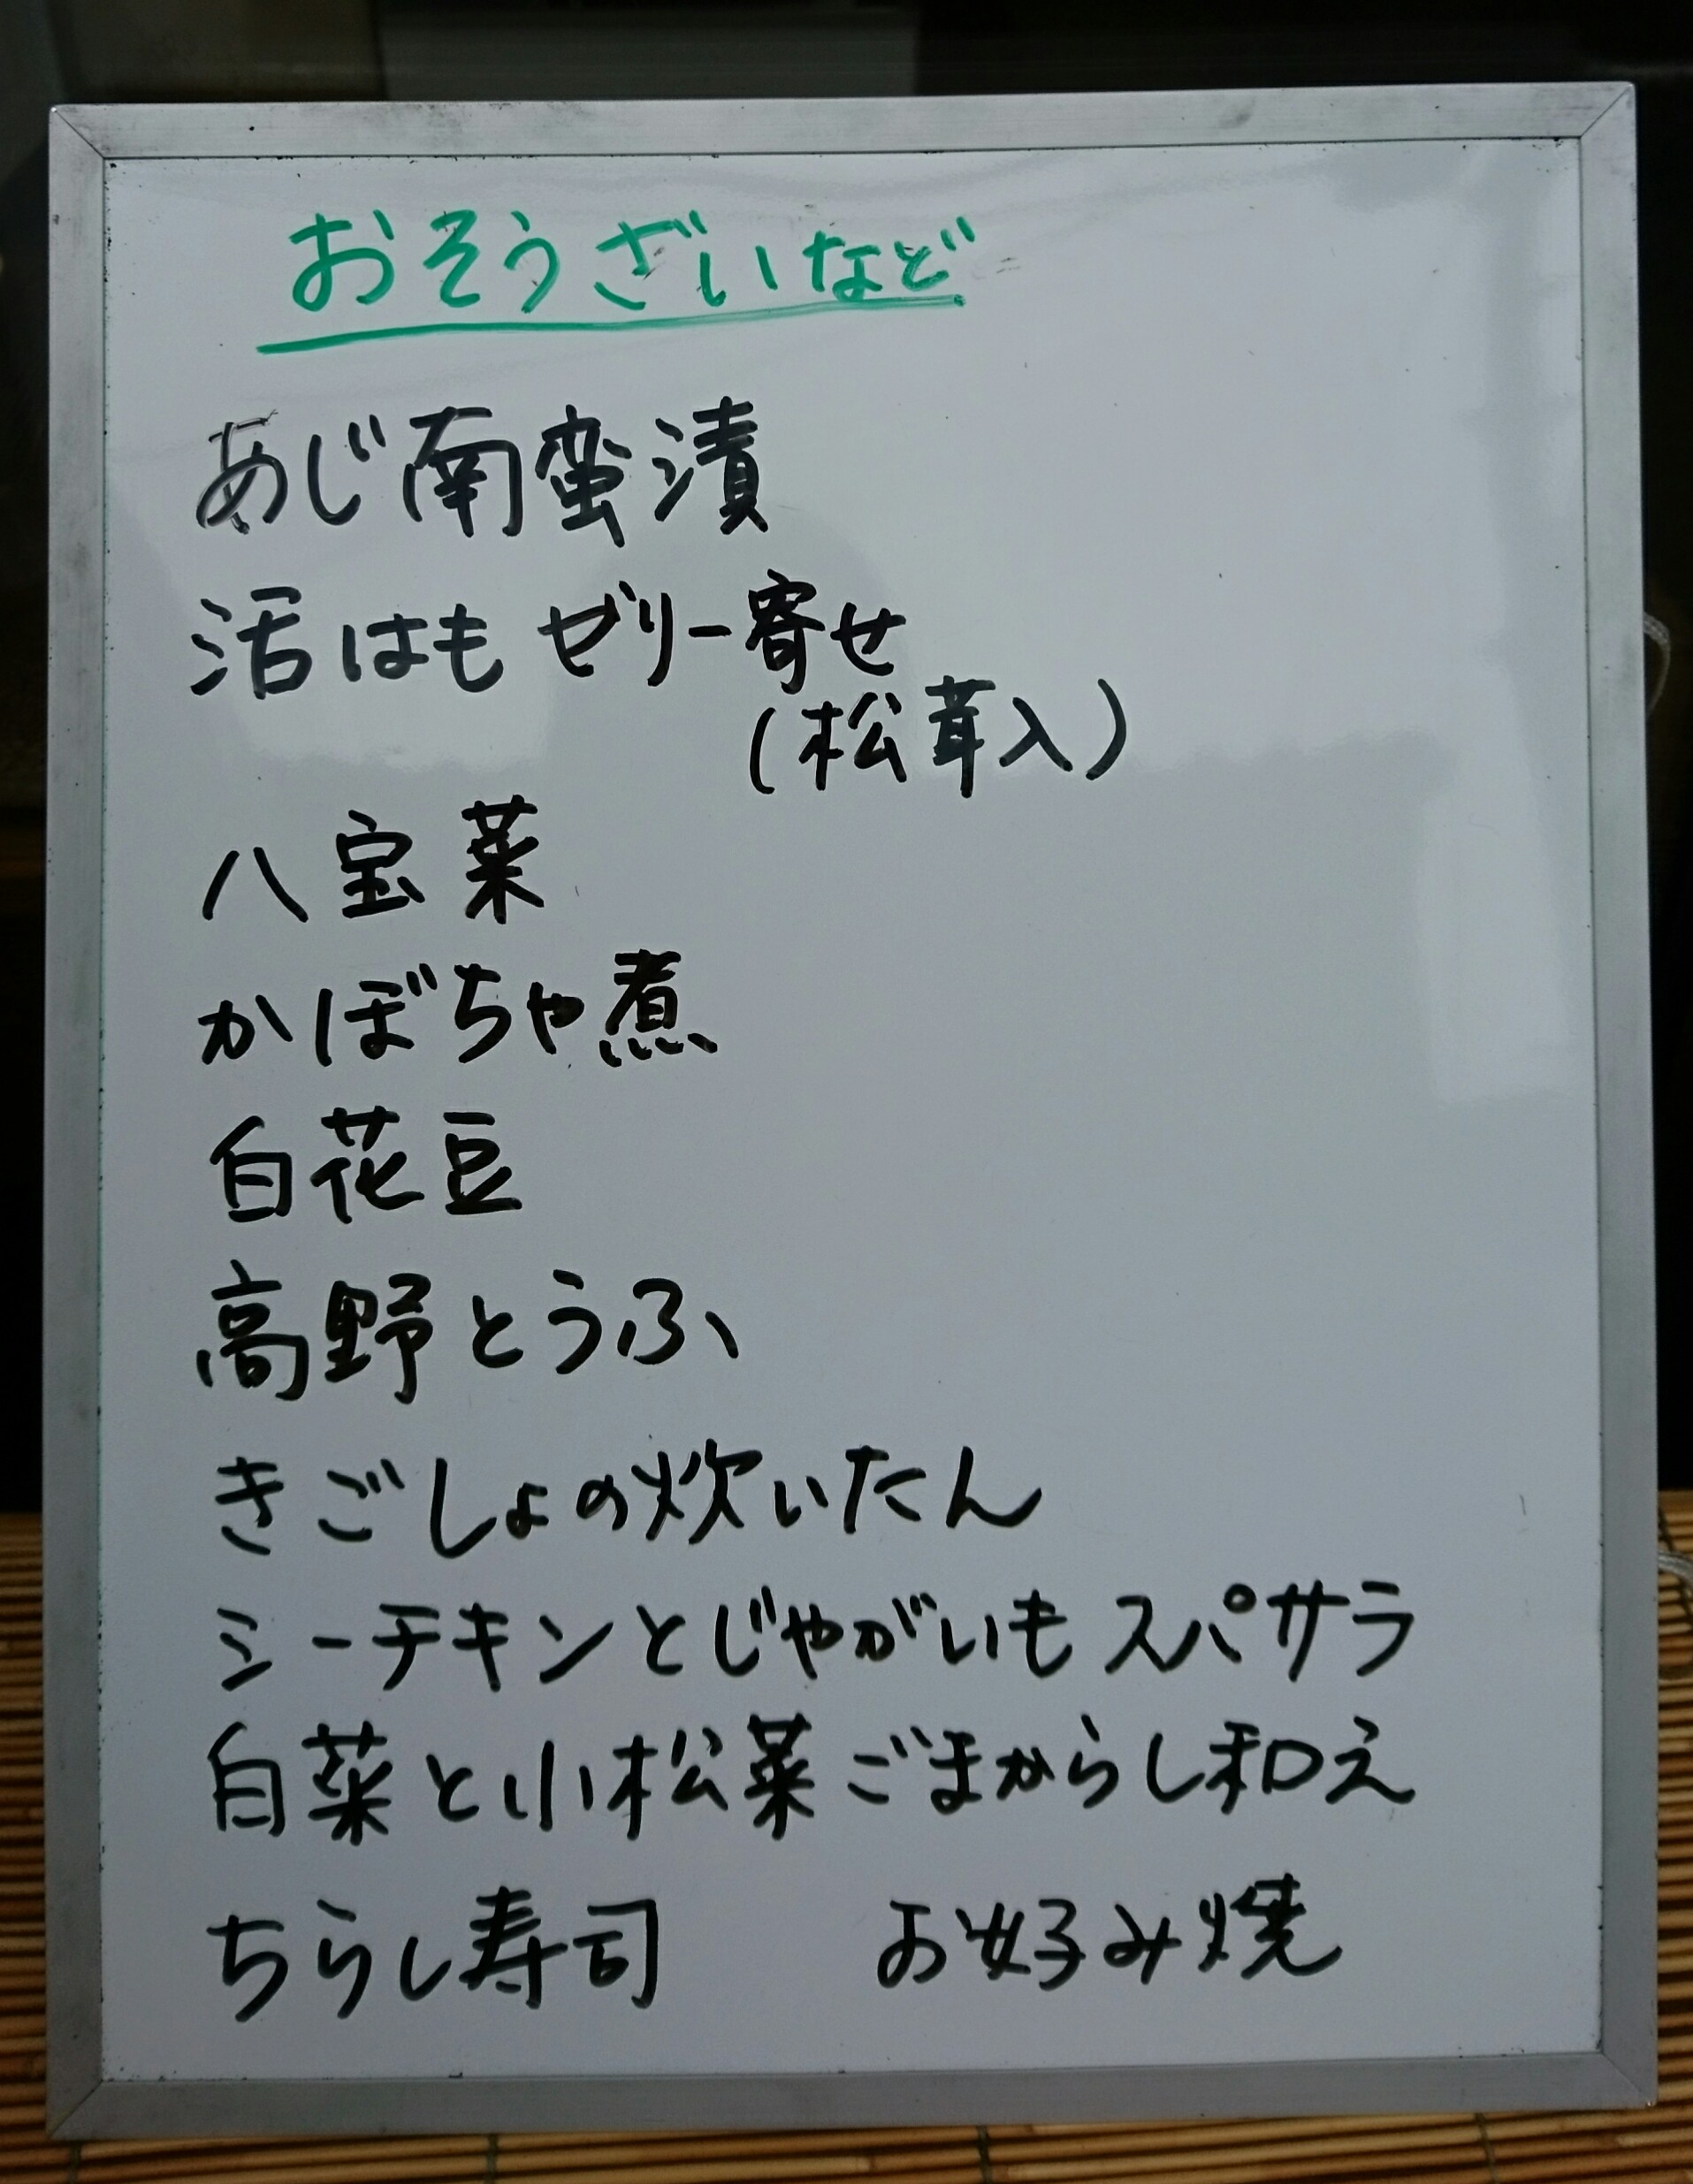 おそうざいなど
あじ南蛮漬
活はも ゼリー寄せ
(松茸入)
八宝菜
かぼちゃ煮
白花豆
高野とうふ
きごしょの炊いたん
シーチキンとじゃがいも スパサラ
白菜と小松菜 ごまからし和え
ちらし寿司 お好み焼